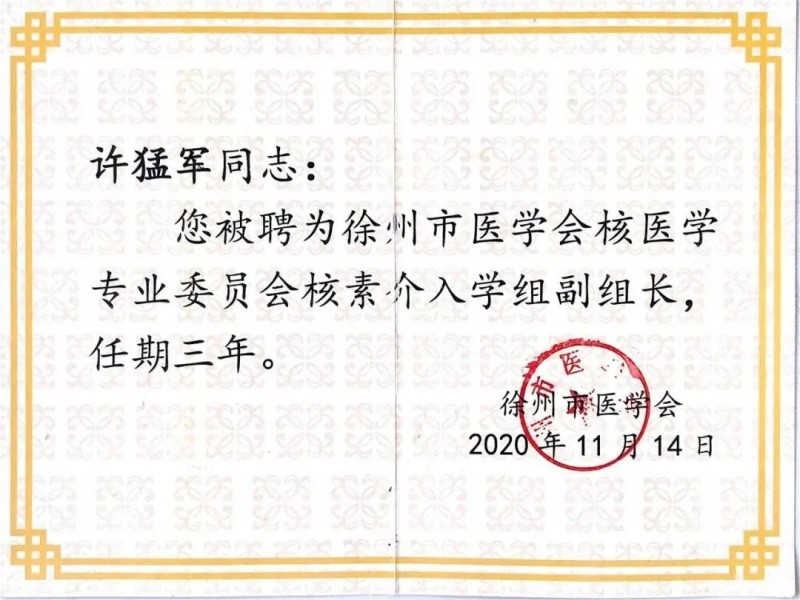 许猛军同志：
您被聘为徐州市医学会核医学
专业委员会核素介入学组副组长，
任期三年。
徐州市医学会
2020 年 11 月 14 日
州市医